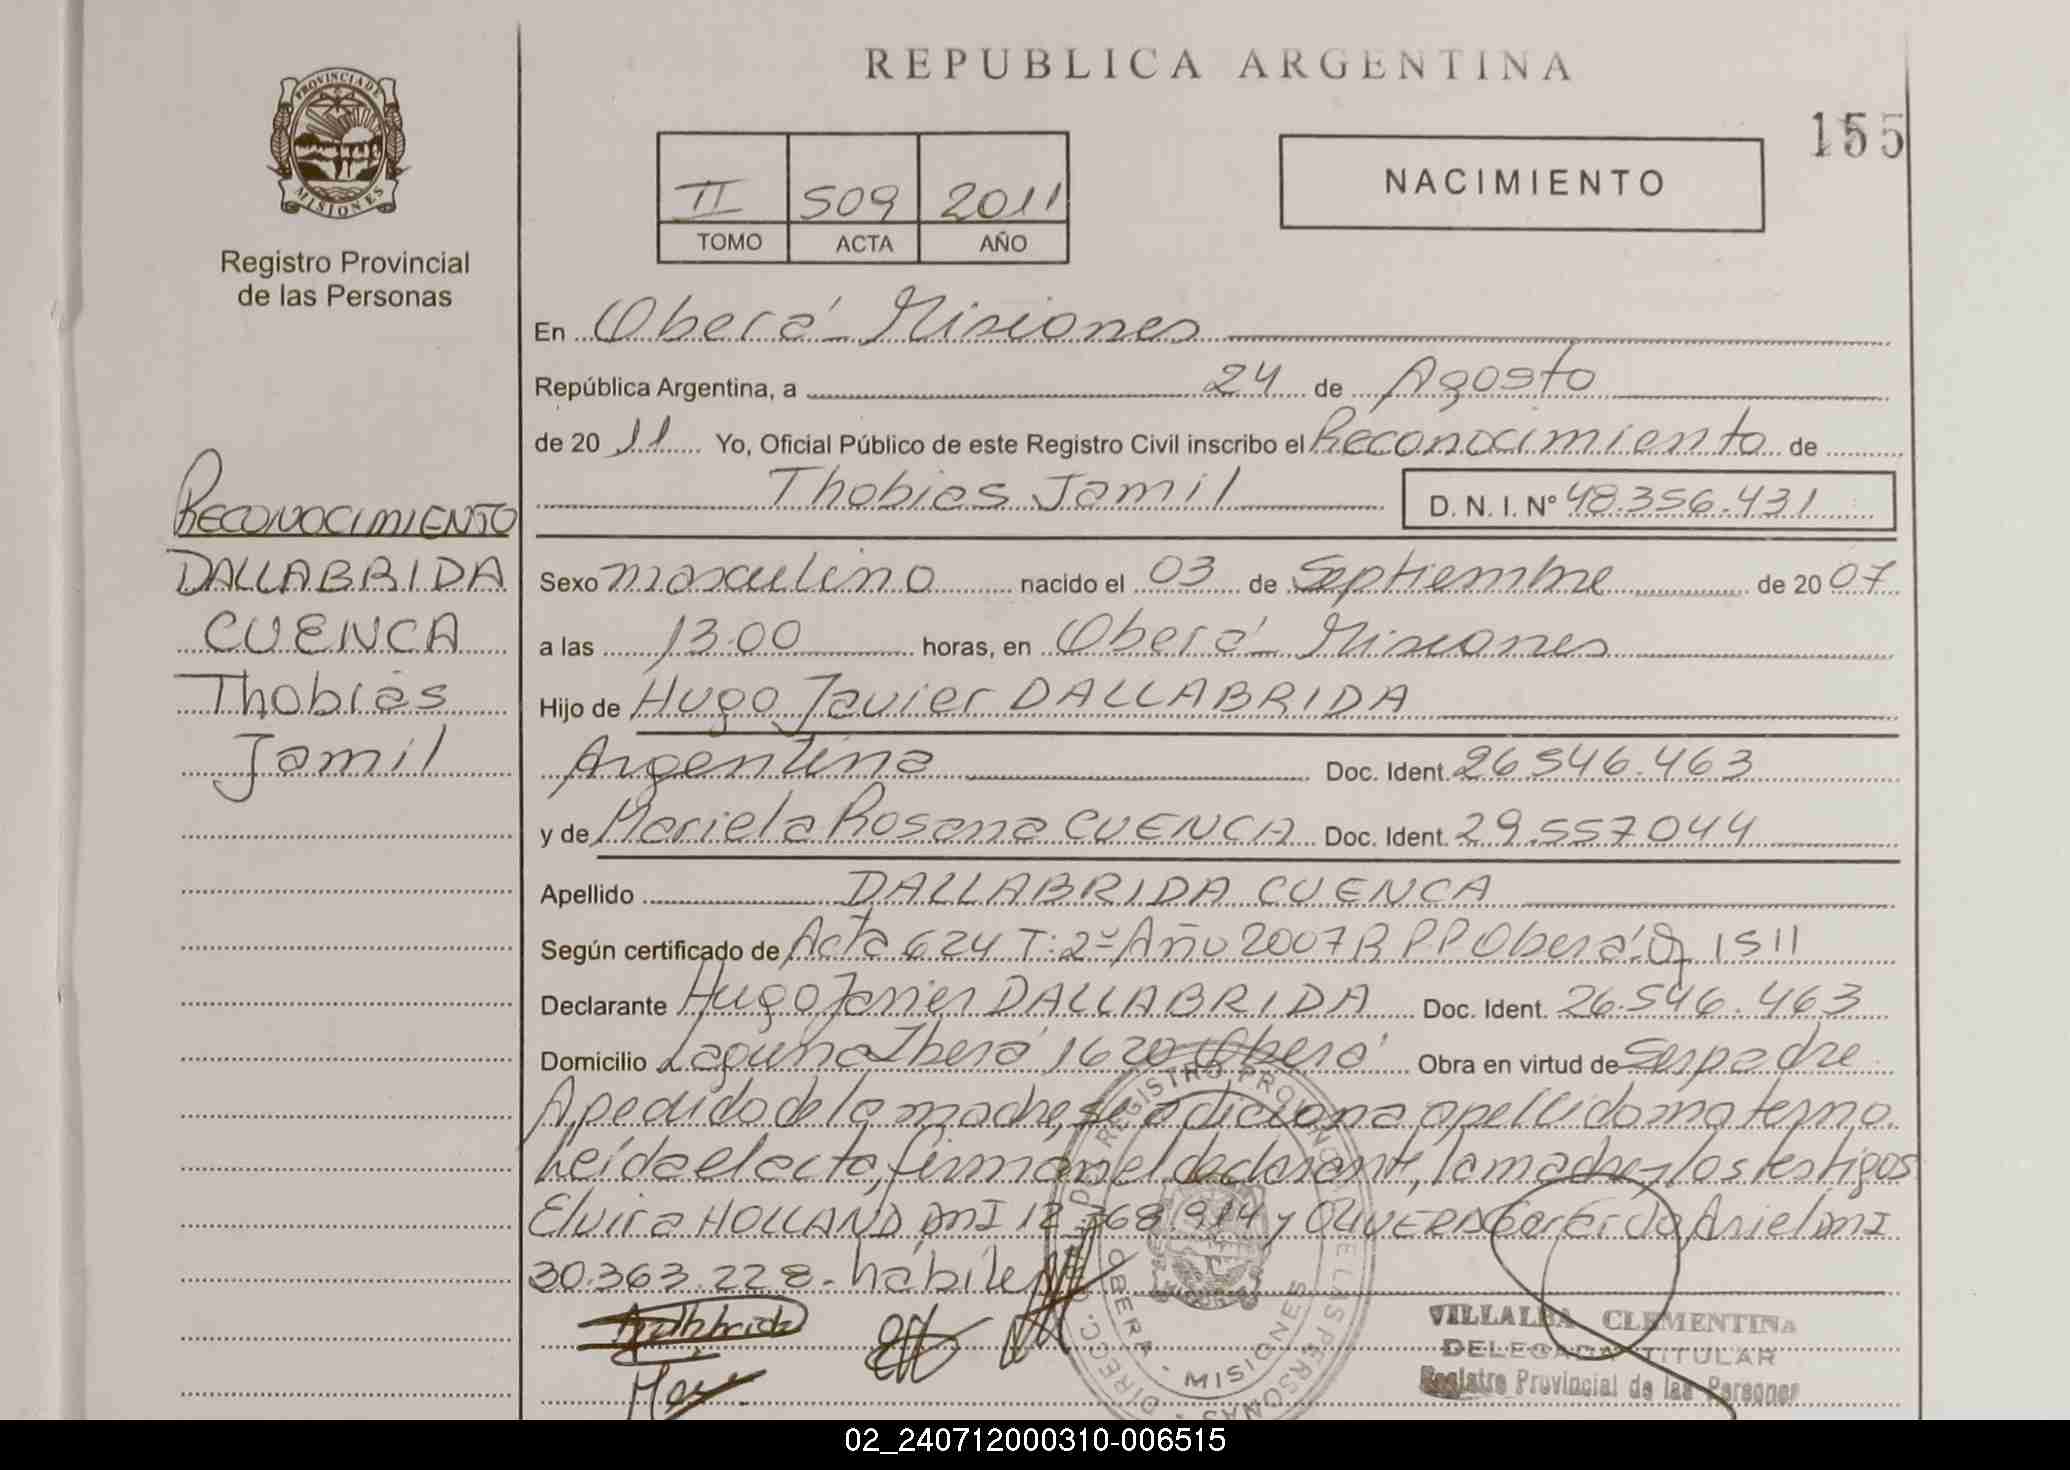 REPUBLICA ARGENTINA
155
PROVINCIA DE
MISIONES
Registro Provincial
de las Personas
II 509 2011
TOMO ACTA AÑO
NACIMIENTO
En Oberá - Misiones
República Argentina, a 24 de Agosto
de 20 11 Yo, Oficial Público de este Registro Civil inscribo el Reconocimiento de
Thobias Jamil D. N. I. N° 48.356.431
RECONOCIMIENTO
DALLABRIDA
CUENCA
Thobias
Jamil
Sexo masculino nacido el 03 de Septiembre de 20 07
a las 13.00 horas, en Oberá - Misiones
Hijo de Hugo Javier DALLABRIDA
Argentina Doc. Ident. 26.546.463
y de Mariela Rosana CUENCA Doc. Ident. 29.557.044
Apellido DALLABRIDA CUENCA
Según certificado de Acta 624 T: 2º Año 2007 R P.P Oberá. 1511
Declarante Hugo Javier DALLABRIDA Doc. Ident. 26.546.463
Domicilio Laguna Iberá 1620 Oberá Obra en virtud de Ser padre
A pedido de la madre, se adiciona apellido materno.
Leída el acta, firman el declarante, la madre y los testigos
Elvira HOLLAND DNI 12.368.914 y OLIVERA Gerardo Ariel DNI
30.363.228 - hábiles
REGISTRO PROVINCIAL DE LAS PERSONAS
OBERA - MISIONES
VILLALBA CLEMENTINA
DELEGADA TITULAR
Registro Provincial de las Personas
02_240712000310-006515